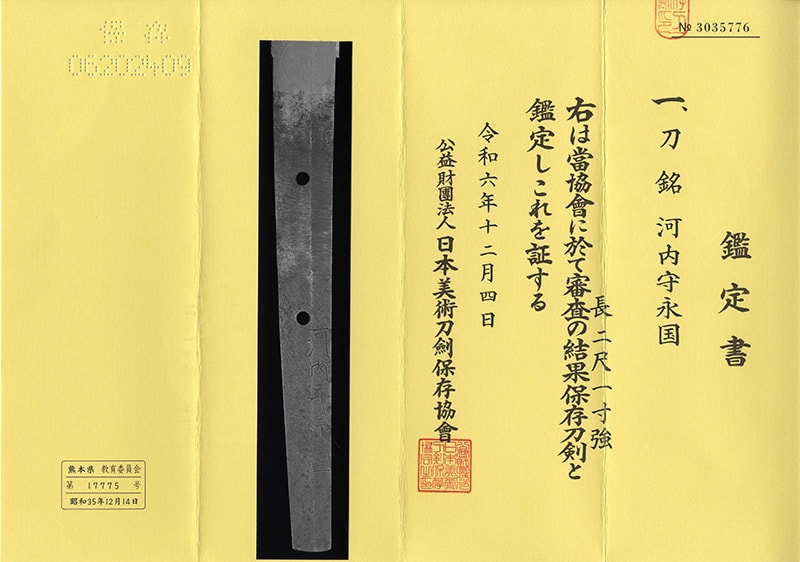 № 3035776
鑑定書
一、刀 銘 河内守永国
長二尺一寸強
右は當協會に於て審査の結果保存刀剣と
鑑定しこれを証する
令和六年十二月四日
公益財團法人 日本美術刀劍保存協會
河内守永
保存
06202409
熊本県 教育委員会
第 17775 号
昭和35年12月14日